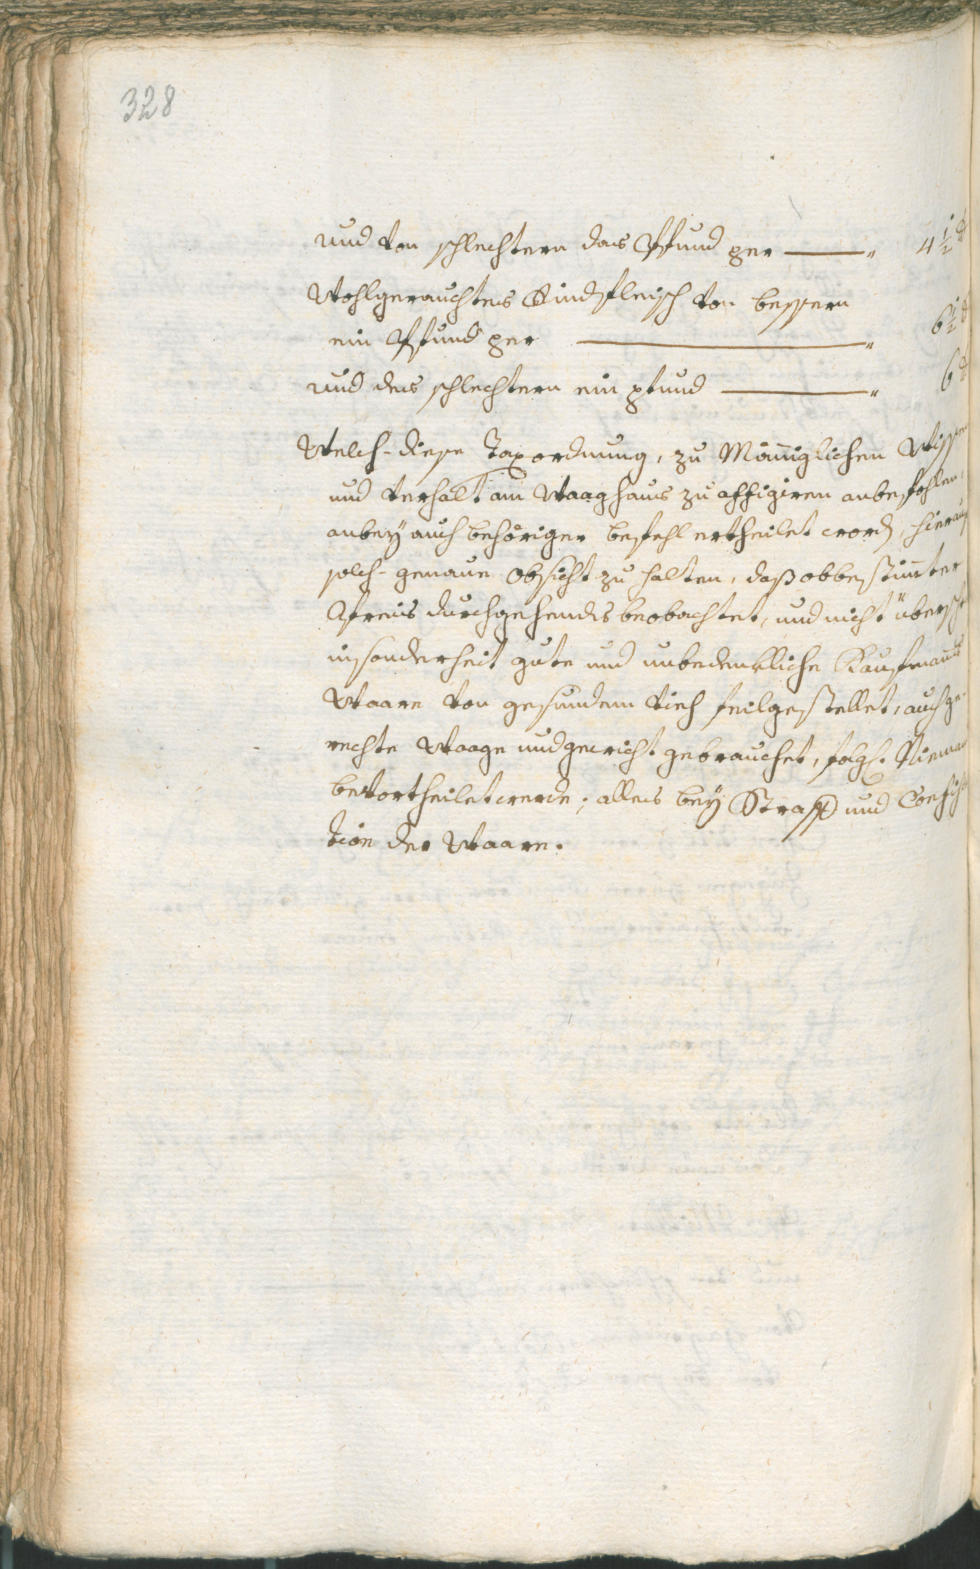 328
und von schlechtern das Pfund per — " 4 1/2 d
Wohlgerauchtes Rindfleisch von bessern
ein Pfund per — " 6 1/2 d
und des schlechtern ein pfund — " 6 d
Welch-diese Taxordnung, zu Mäniglichen Wissen
und Verhalt am Waaghaus zu affigiren anbefohlen,
anbeÿ auch behöriger befehl ertheilet word, hierauf
solch-genaue obsicht zu halten, daß obbestimter
Preis durchgehends beobachtet, und nicht übersch
insonderheit gute und unbedenkliche Kaufmans
Waare von gesundem Vieh feilgestellet, auch ge-
rechte Waage und gewicht gebrauchet, folgl. Nieman
bevortheilet werde; alles beÿ Straff und Confisca
tion der Waare.